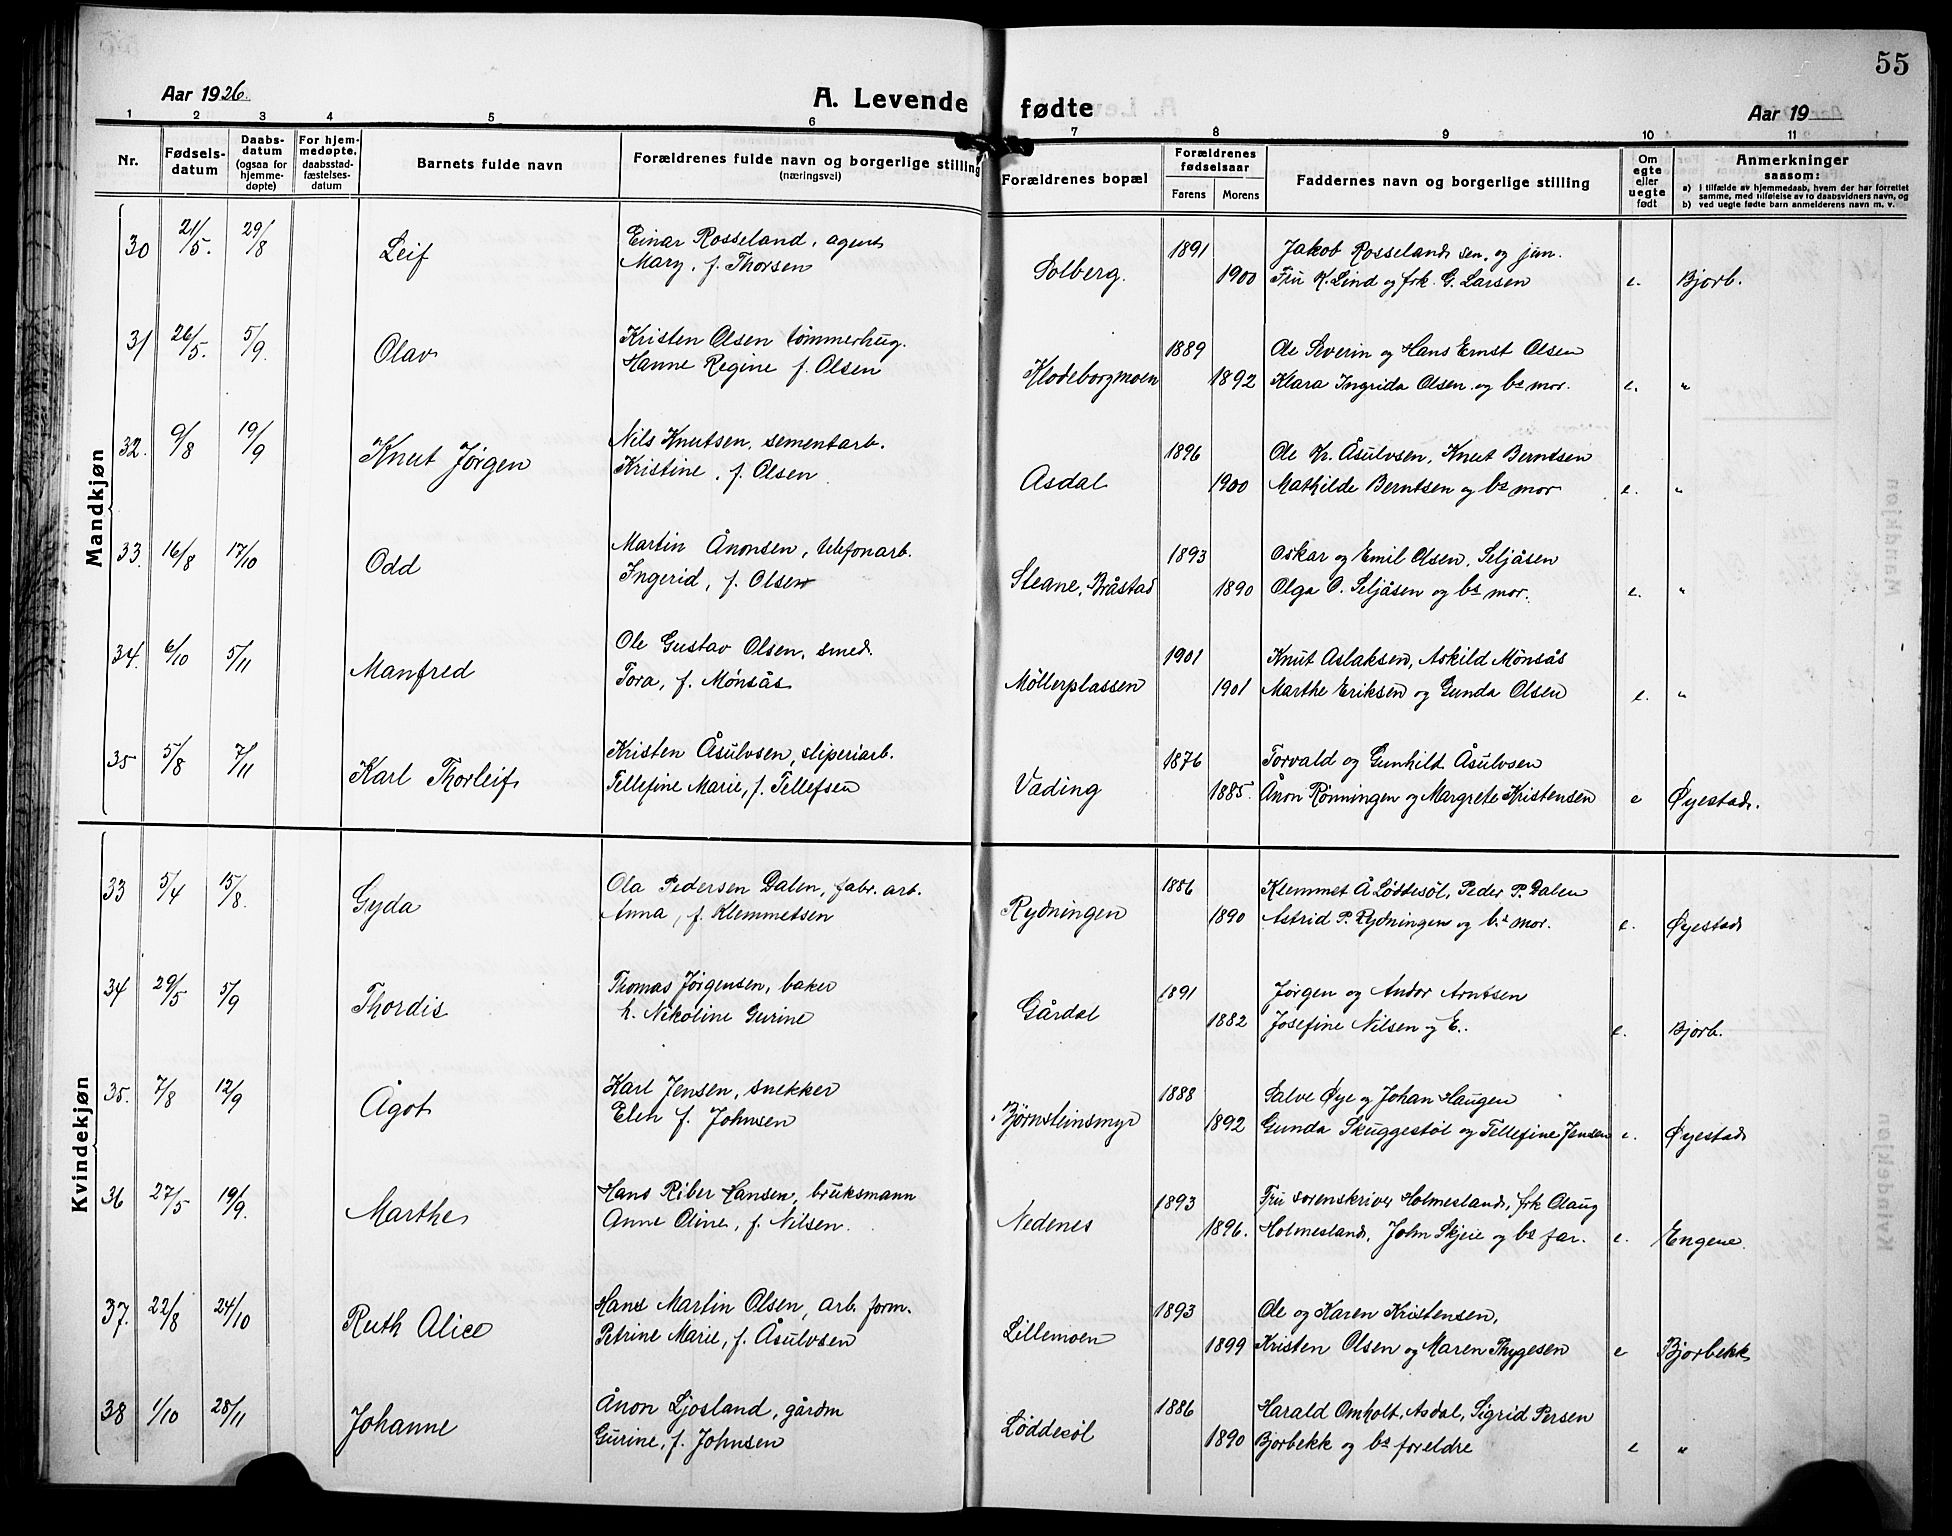 55
Aar 1926.
A. Levende fødte
Aar 19
1 2 3 4 5 6 7 8 9 10 11
Nr.
Fødsels-
datum
Daabs-
datum
(ogsaa for
hjemme-
døpte)
For hjem-
medøpte.
daabsstad-
fæstelses-
datum
Barnets fulde navn
Forældrenes fulde navn og borgerlige stilling
(næringsvei)
Forældrenes bopæl
Forældrenes
fødselsaar
Farens Morens
Faddernes navn og borgerlige stilling
Om
egte
eller
uegte
født
Anmerkninger
saasom:
a) i tilfælde av hjemmedaab, hvem der har forrettet
samme, med tilføielse av to daabsvidners navn, og
b) ved uegte fødte barn anmelderens navn m. v.
Mandkjøn
30 21/5. 29/8 Leif Einar Rosseland, agent 1891 Jakob Rosseland sen. og jun.
Mary, f. Thorsen Solberg. 1900 Fru K. Lind og frk. G. Larsen e. Bjorb.
31 26/5. 5/9. Olav Kristen Olsen tømmerhug. 1889 Ole Severin og Hans Ernst Olsen
Hanne Regine f. Olsen Klodeborgmoen 1892 Klara Ingrida Olsen og bs mor. e. "
32. 9/8 19/9 Knut Jørgen Nils Knutsen, sementarb. 1896 Ole Kr. Åsulvsen, Knut Berntsen
Kristine, f. Olsen Asdal 1900 Mathilde Berntsen og bs mor e. "
33. 16/8 17/10 Odd Martin Ånonsen, telefonarb. 1893 Oskar og Emil Olsen, Seljåsen
Ingerid, f. Olsen Steane, Bråstad 1890 Olga O. Seljåsen og bs mor. e. "
34. 6/10 5/11 Manfred Ole Gustav Olsen, smed. 1901 Knut Aslaksen, Askild Mönsås
Tora, f. Mönsås Möllerplassen 1901 Marthe Eriksen og Gunda Olsen e. "
35 5/8 7/11 Karl Thorleif Kristen Åsulvsen, sliperiarb. 1876 Torvald og Gunhild Åsulvsen
Tellefine Marie, f. Tellefsen Vading 1885. Ånon Rönningen og Margrete Kristensen e Øyestad.
Kvindekjøn
33 5/4 15/8. Gyda Ola Pedersen Dalen, fabr. arb. 1886 Klemmet Å Løddesøl, Peder P. Dalen
Anna, f. Klemmetsen Rydningen 1890 Astrid P. Rydningen og bs mor. e. Øyestad
34 29/5 5/9 Thordis Thomas Jørgensen, baker 1891 Jørgen og Andor Arntsen
h. Nikoline Gurine Gårdal 1882 Josefine Nilsen og E.. e. Bjorb.
35. 7/8 12/9 Ågot Karl Jensen, snekker 1888 Salve Øye og Johan Haugen
Elen f. Johnsen Bjørnsteinsmyr 1892 Gunda Skuggestøl og Tellefine Jensen e. Øyestad
36 27/5 19/9. Marthe Hans Riber Hansen, bruksmann 1893 Fru sorenskriver Holmesland, frk Olaug
Anne Oline, f. Nilsen. Nedenes 1896. Holmesland, John Skjeie og bs far. e. Engene.
37. 22/8 24/10 Ruth Alice Hans Martin Olsen, arb. form. 1893 Ole og Karen Kristensen,
Petrine Marie, f. Åsulvsen Lillemoen 1899 Kristen Olsen og Maren Thygesen e Bjorbekk
38 1/10 28/11 Johanne Ånon Ljosland, gårdm 1886 Harald Omholt, Asdal, Sigrid Persen
Gurine, f. Johnsen Løddesøl 1890 Bjorbekk og bs foreldre e "